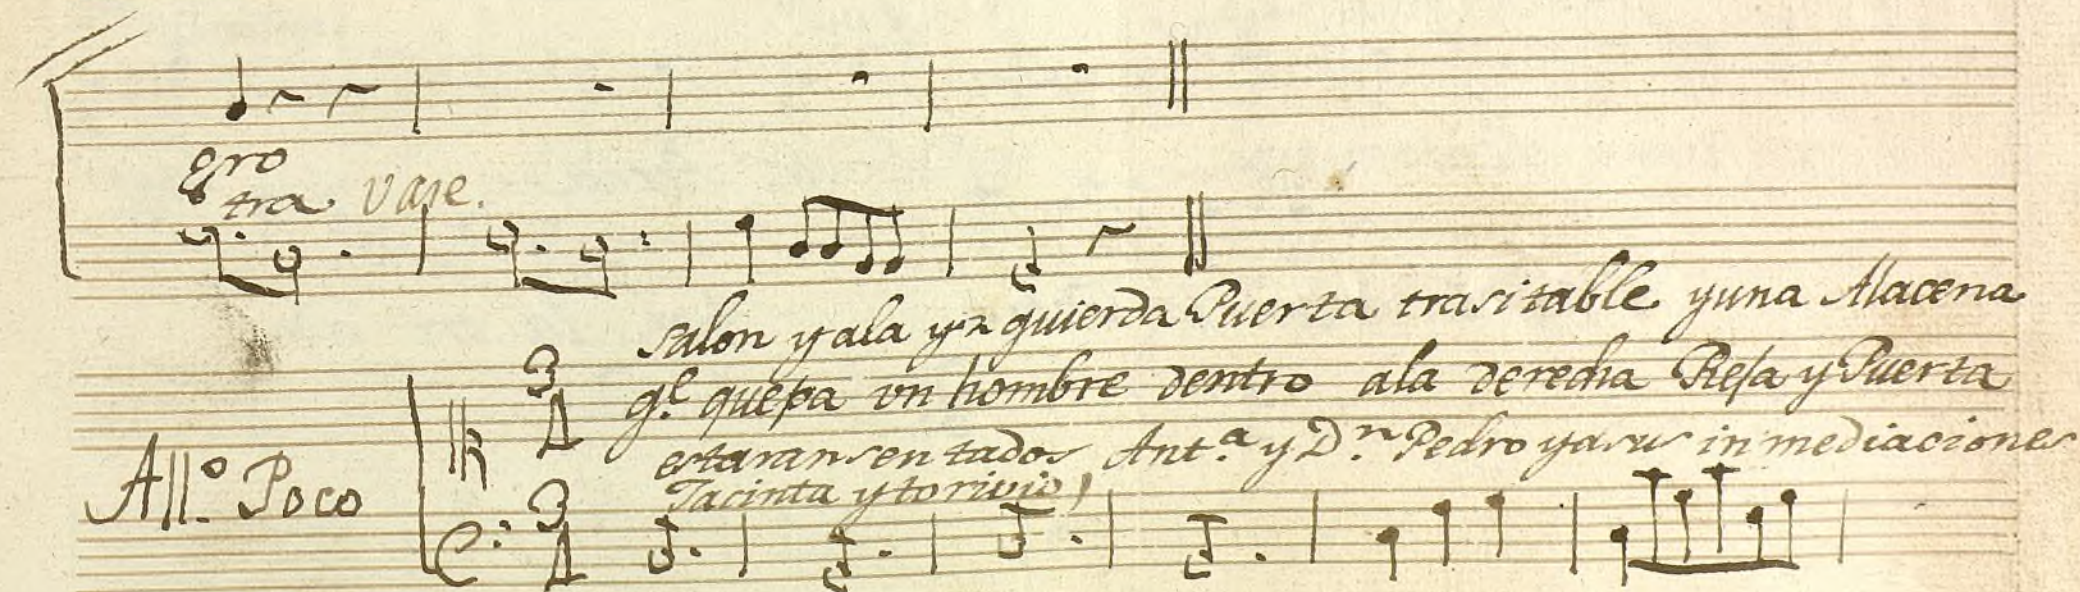 gro
tra vase.
salon y ala yzquierda Puerta trasitable y una Alacena
q.e quepa un hombre dentro ala derecha Reja y Puerta
estaran sentados Ant.a y D.n Pedro y a sus inmediaciones
Jacinta y torivio,
All.o Poco
3
4
3
4